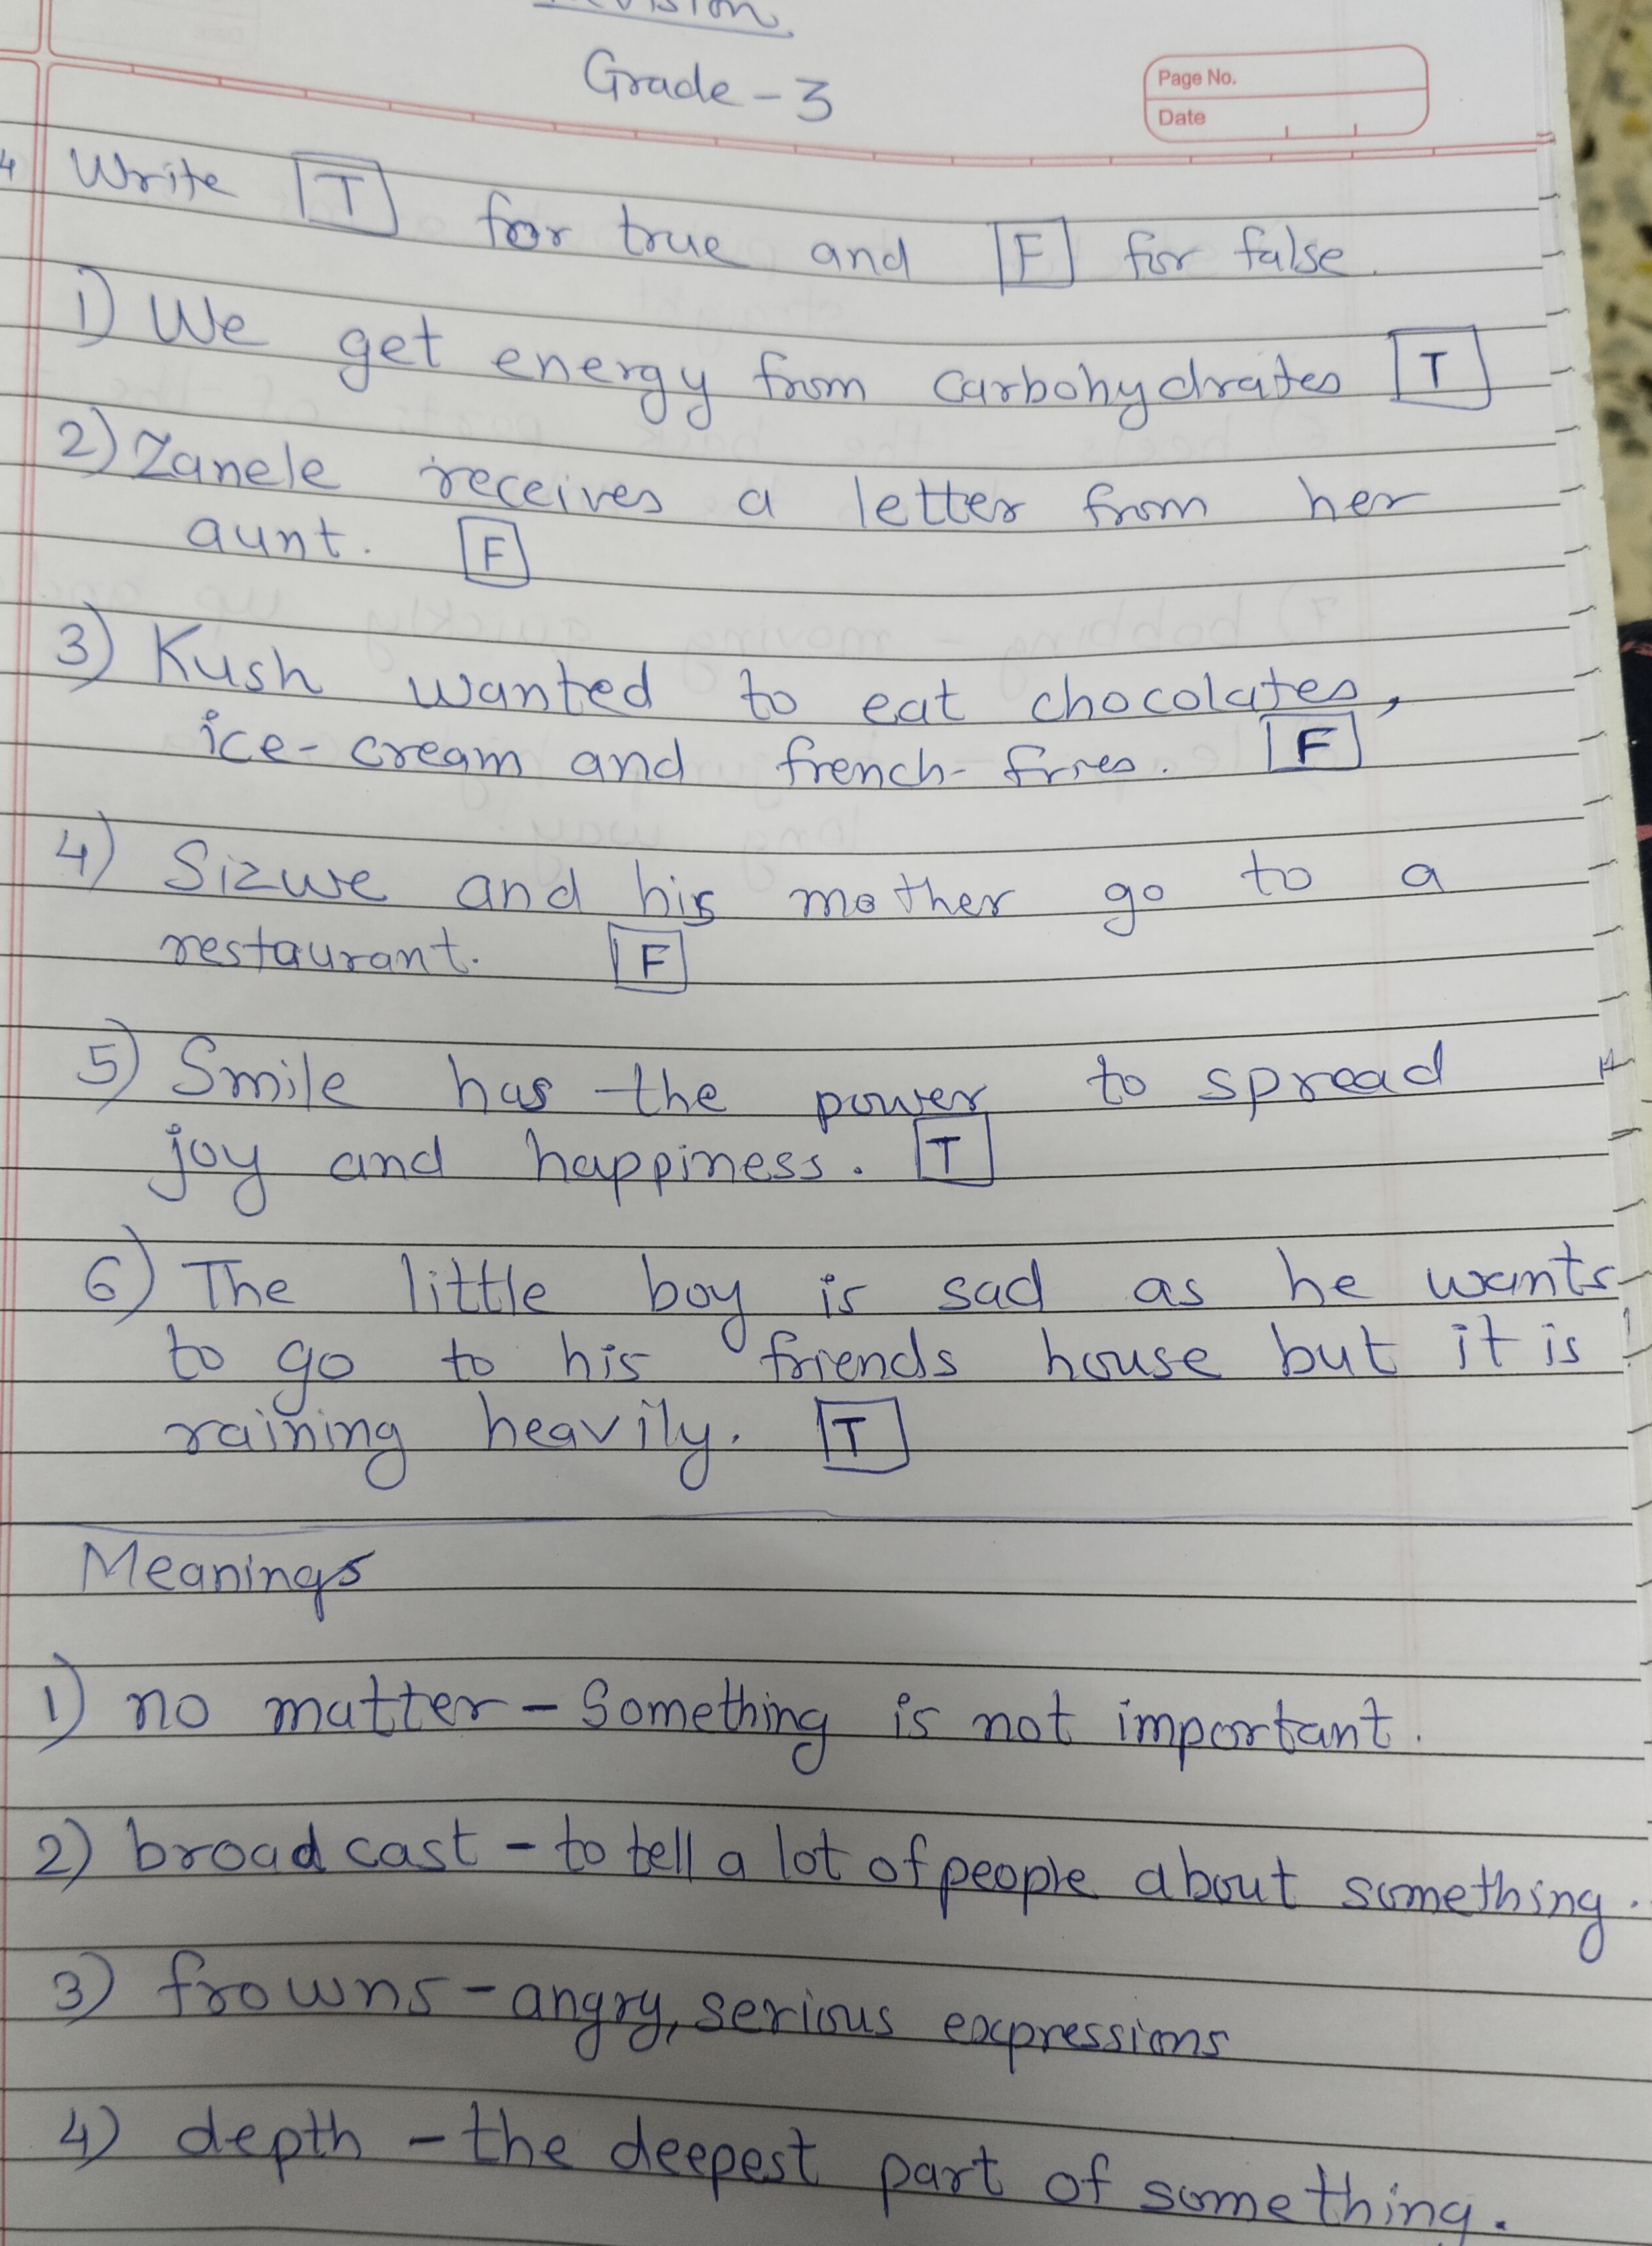 Grade - 3
Page No.
Date
Write T for true and F for false.
1) We get energy from carbohydrates T
2) Zanele receives a letter from her
aunt. F
3) Kush wanted to eat chocolates,
ice-cream and french-fries. F
4) Sizwe and his mother go to a
restaurant. F
5) Smile has the power to spread
joy and happiness. T
6) The little boy is sad as he wants
to go to his friends house but it is
raining heavily. T
Meanings
1) no matter - Something is not important.
2) broad cast - to tell a lot of people about something.
3) frowns - angry, serious expressions
4) depth - the deepest part of something.